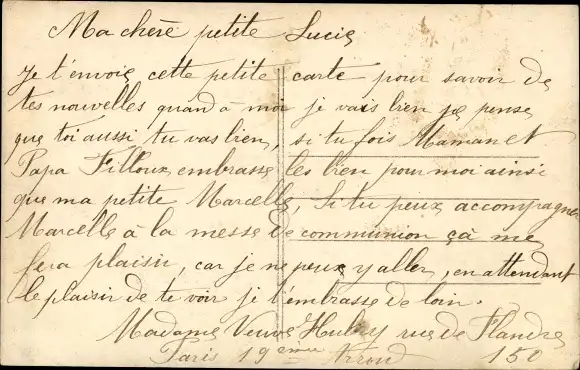 Ma chère petite Lucie
Je t'envoie cette petite carte pour savoir de
tes nouvelles quand a moi je vais bien je pense
que toi aussi tu vas bien, si tu fois Maman et
Papa Filloux embrasse les bien pour moi ainsi
que ma petite Marcelle, Si tu peux accompagner
Marcelle a la messe de communion çà me
fera plaisir, car je ne peux y aller, en attendant
le plaisir de te voir je t'embrasse de loin.
Madame Veuve rue de Flandre
Paris 19eme Arrond 150